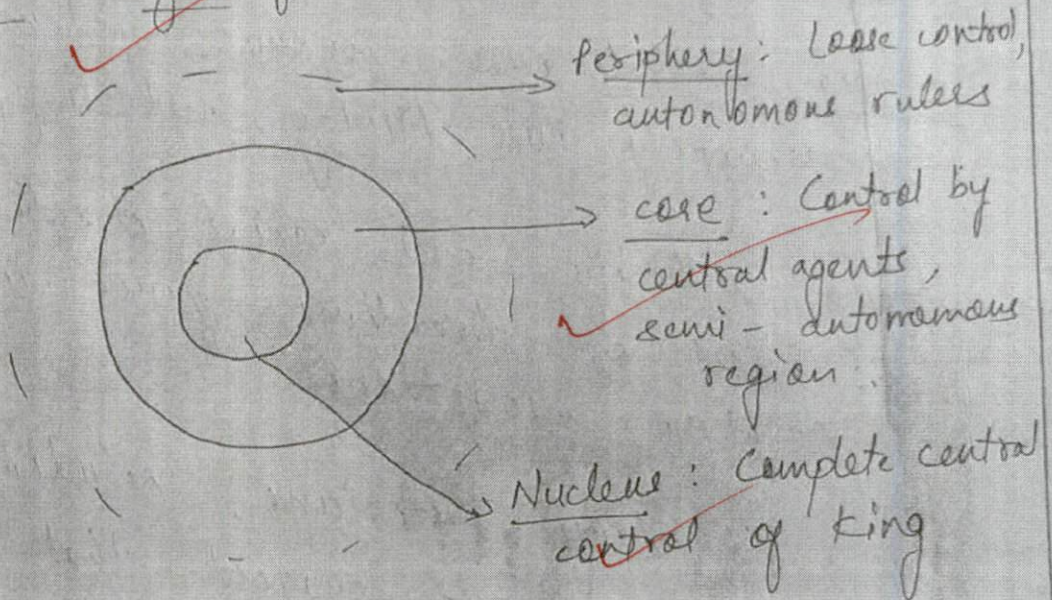 Periphery : Loose control,
autonomous rulers
core : Control by
central agents,
semi - autonomous
region.
Nucleus : Complete central
control of King